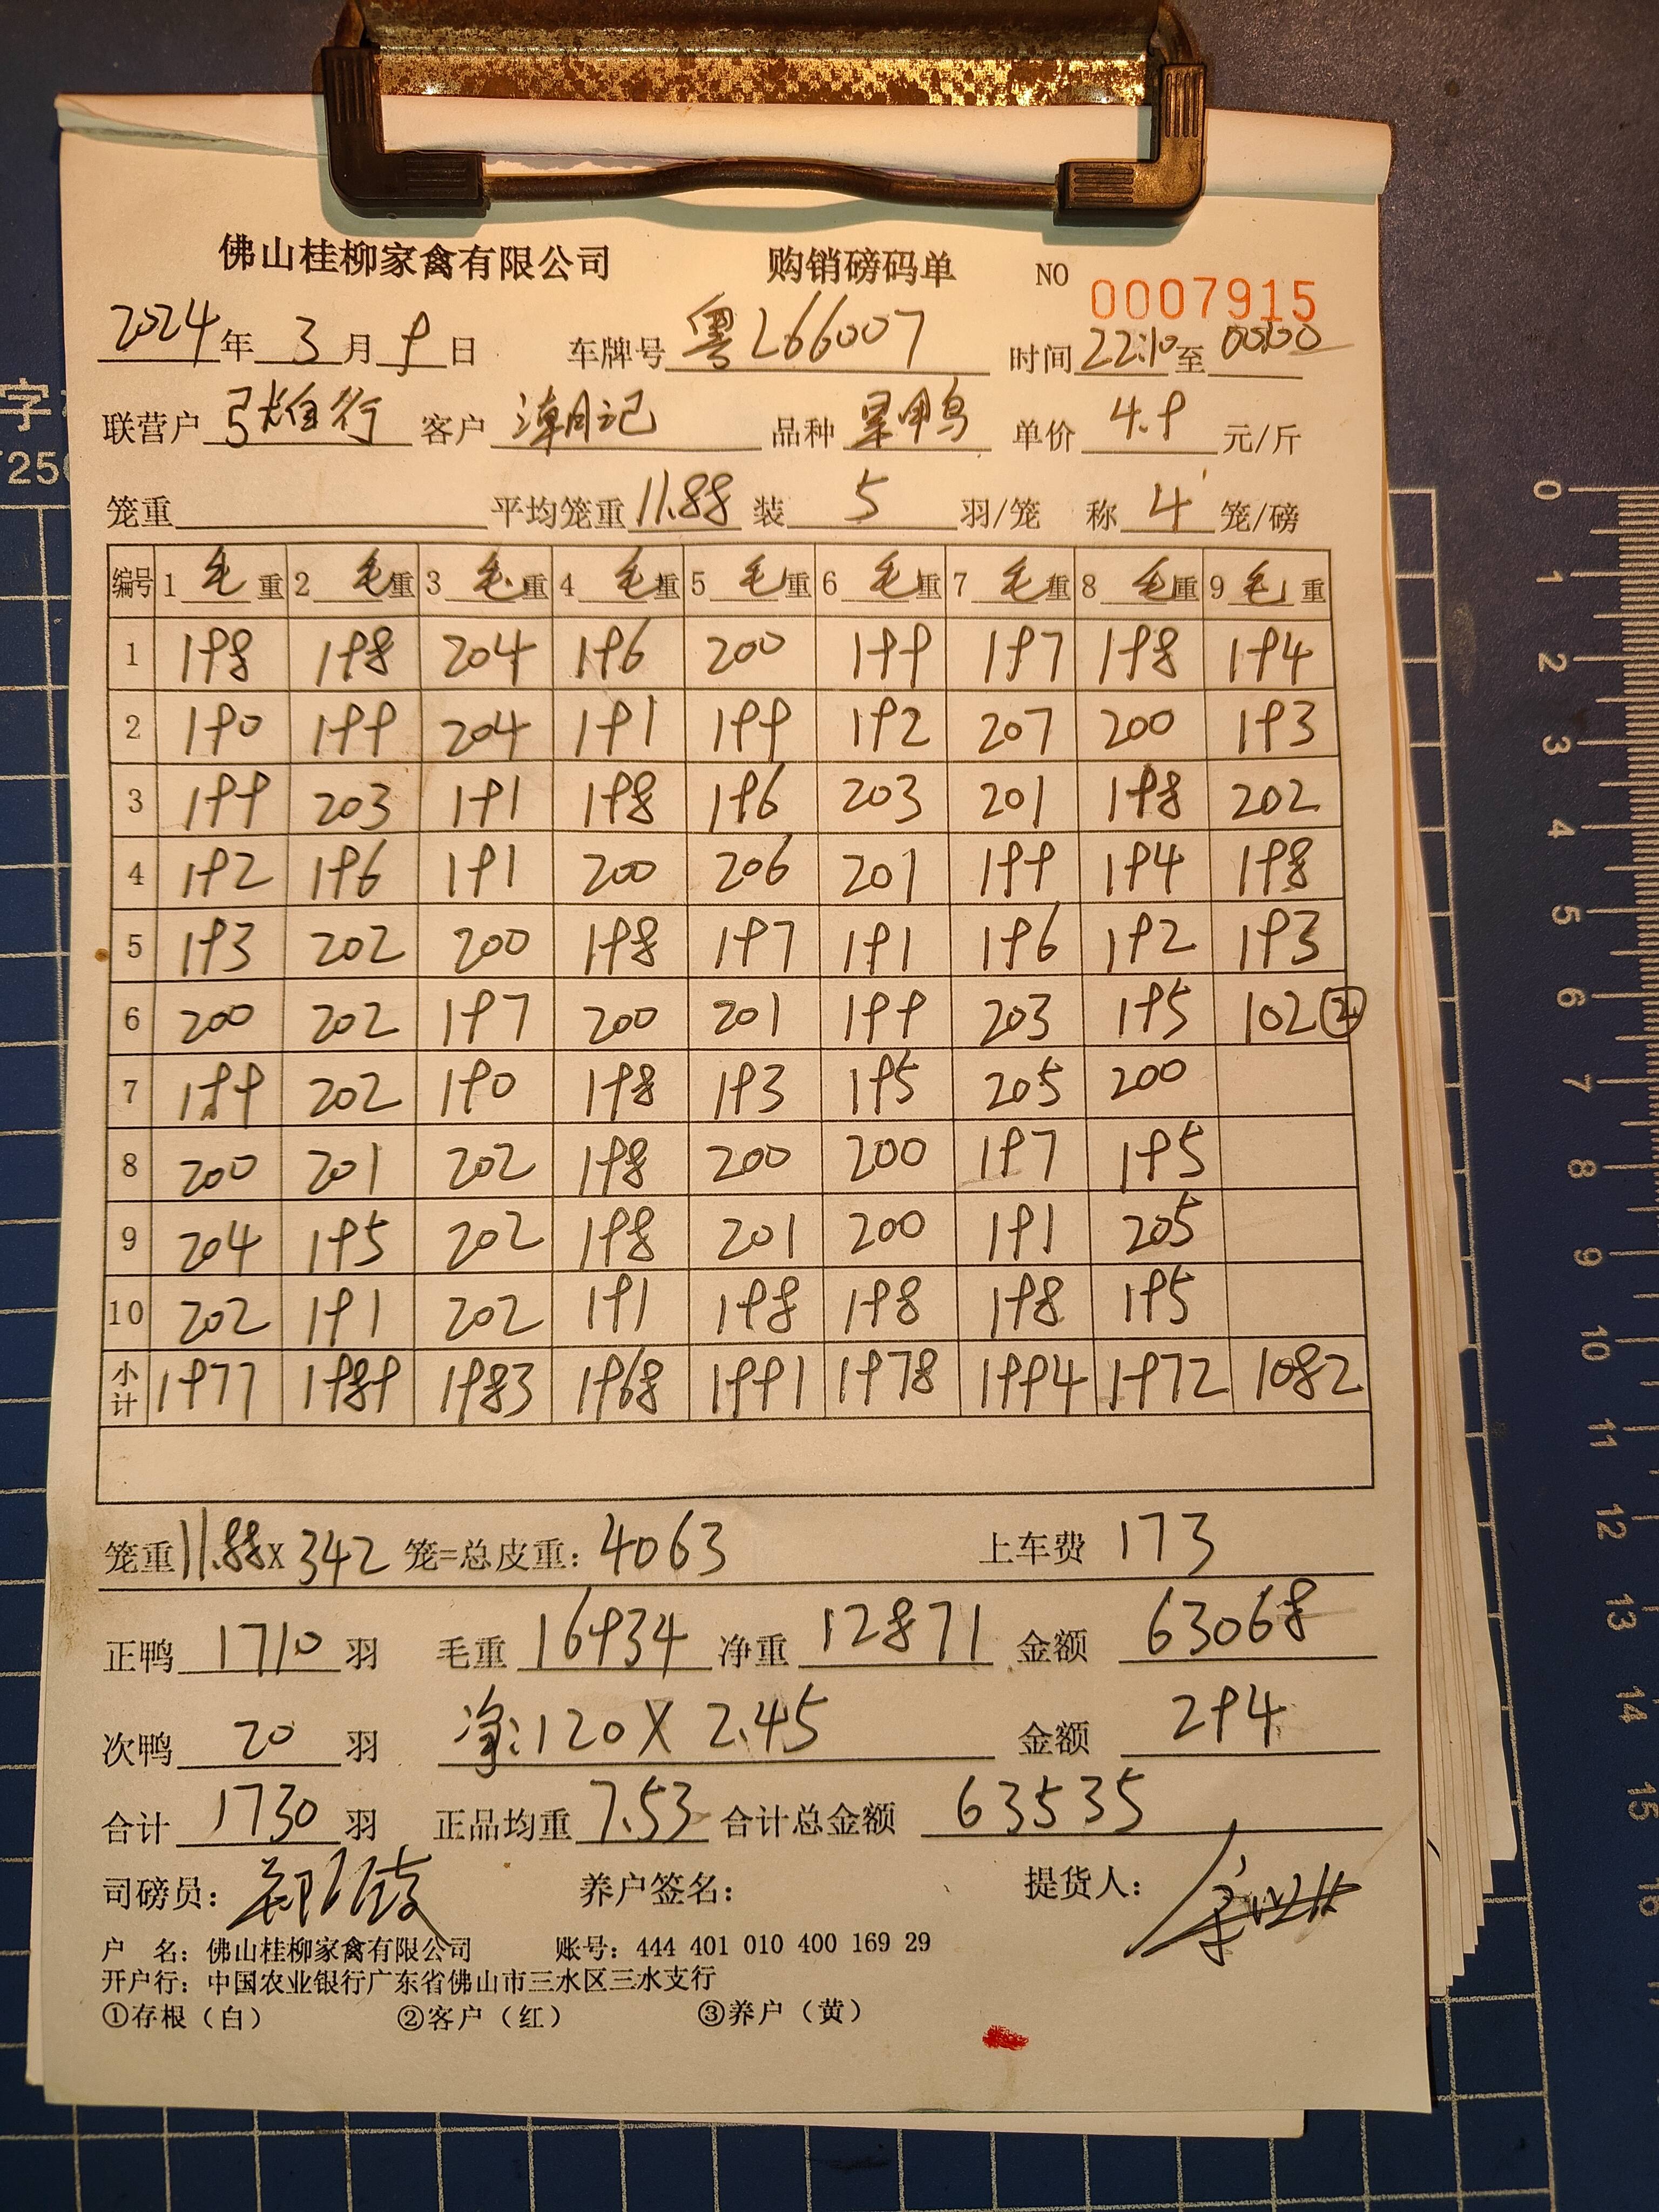 佛山桂柳家禽有限公司 购销磅码单 NO 0007915
2024年3月9日 车牌号 粤L66007 时间 22:10 至 00:00
联营户 张雄行 客户 潮记 品种 单价 4.9 元/斤
笼重 平均笼重 11.88 装 5 羽/笼 称 4 笼/磅
编号 1 毛重 2 毛重 3 毛重 4 毛重 5 毛重 6 毛重 7 毛重 8 毛重 9 毛重
1 198 198 204 196 200 199 197 198 194
2 190 199 204 191 199 192 207 200 193
3 199 203 191 198 196 203 201 198 202
4 192 196 191 200 206 201 199 194 198
5 193 202 200 198 197 191 196 192 193
6 200 202 197 200 201 199 203 195 102 ②
7 199 202 190 198 193 195 205 200
8 200 201 202 198 200 200 197 195
9 204 195 202 198 201 200 191 205
10 202 191 202 191 198 198 198 195
小计 1977 1989 1983 1968 1991 1978 1994 1972 1082
笼重 11.88 X 342 笼=总皮重: 4063 上车费 173
正鸭 1710 羽 毛重 16934 净重 12871 金额 63068
次鸭 20 羽 净:120 X 2.45 金额 294
合计 1730 羽 正品均重 7.53 合计总金额 63535
司磅员: 养户签名: 提货人:
户 名: 佛山桂柳家禽有限公司 账号: 444 401 010 400 169 29
开户行: 中国农业银行广东省佛山市三水区三水支行
①存根（白） ②客户（红） ③养户（黄）
字
250
0
1
2
3
4
5
6
7
8
9
10
11
12
13
14
15
16